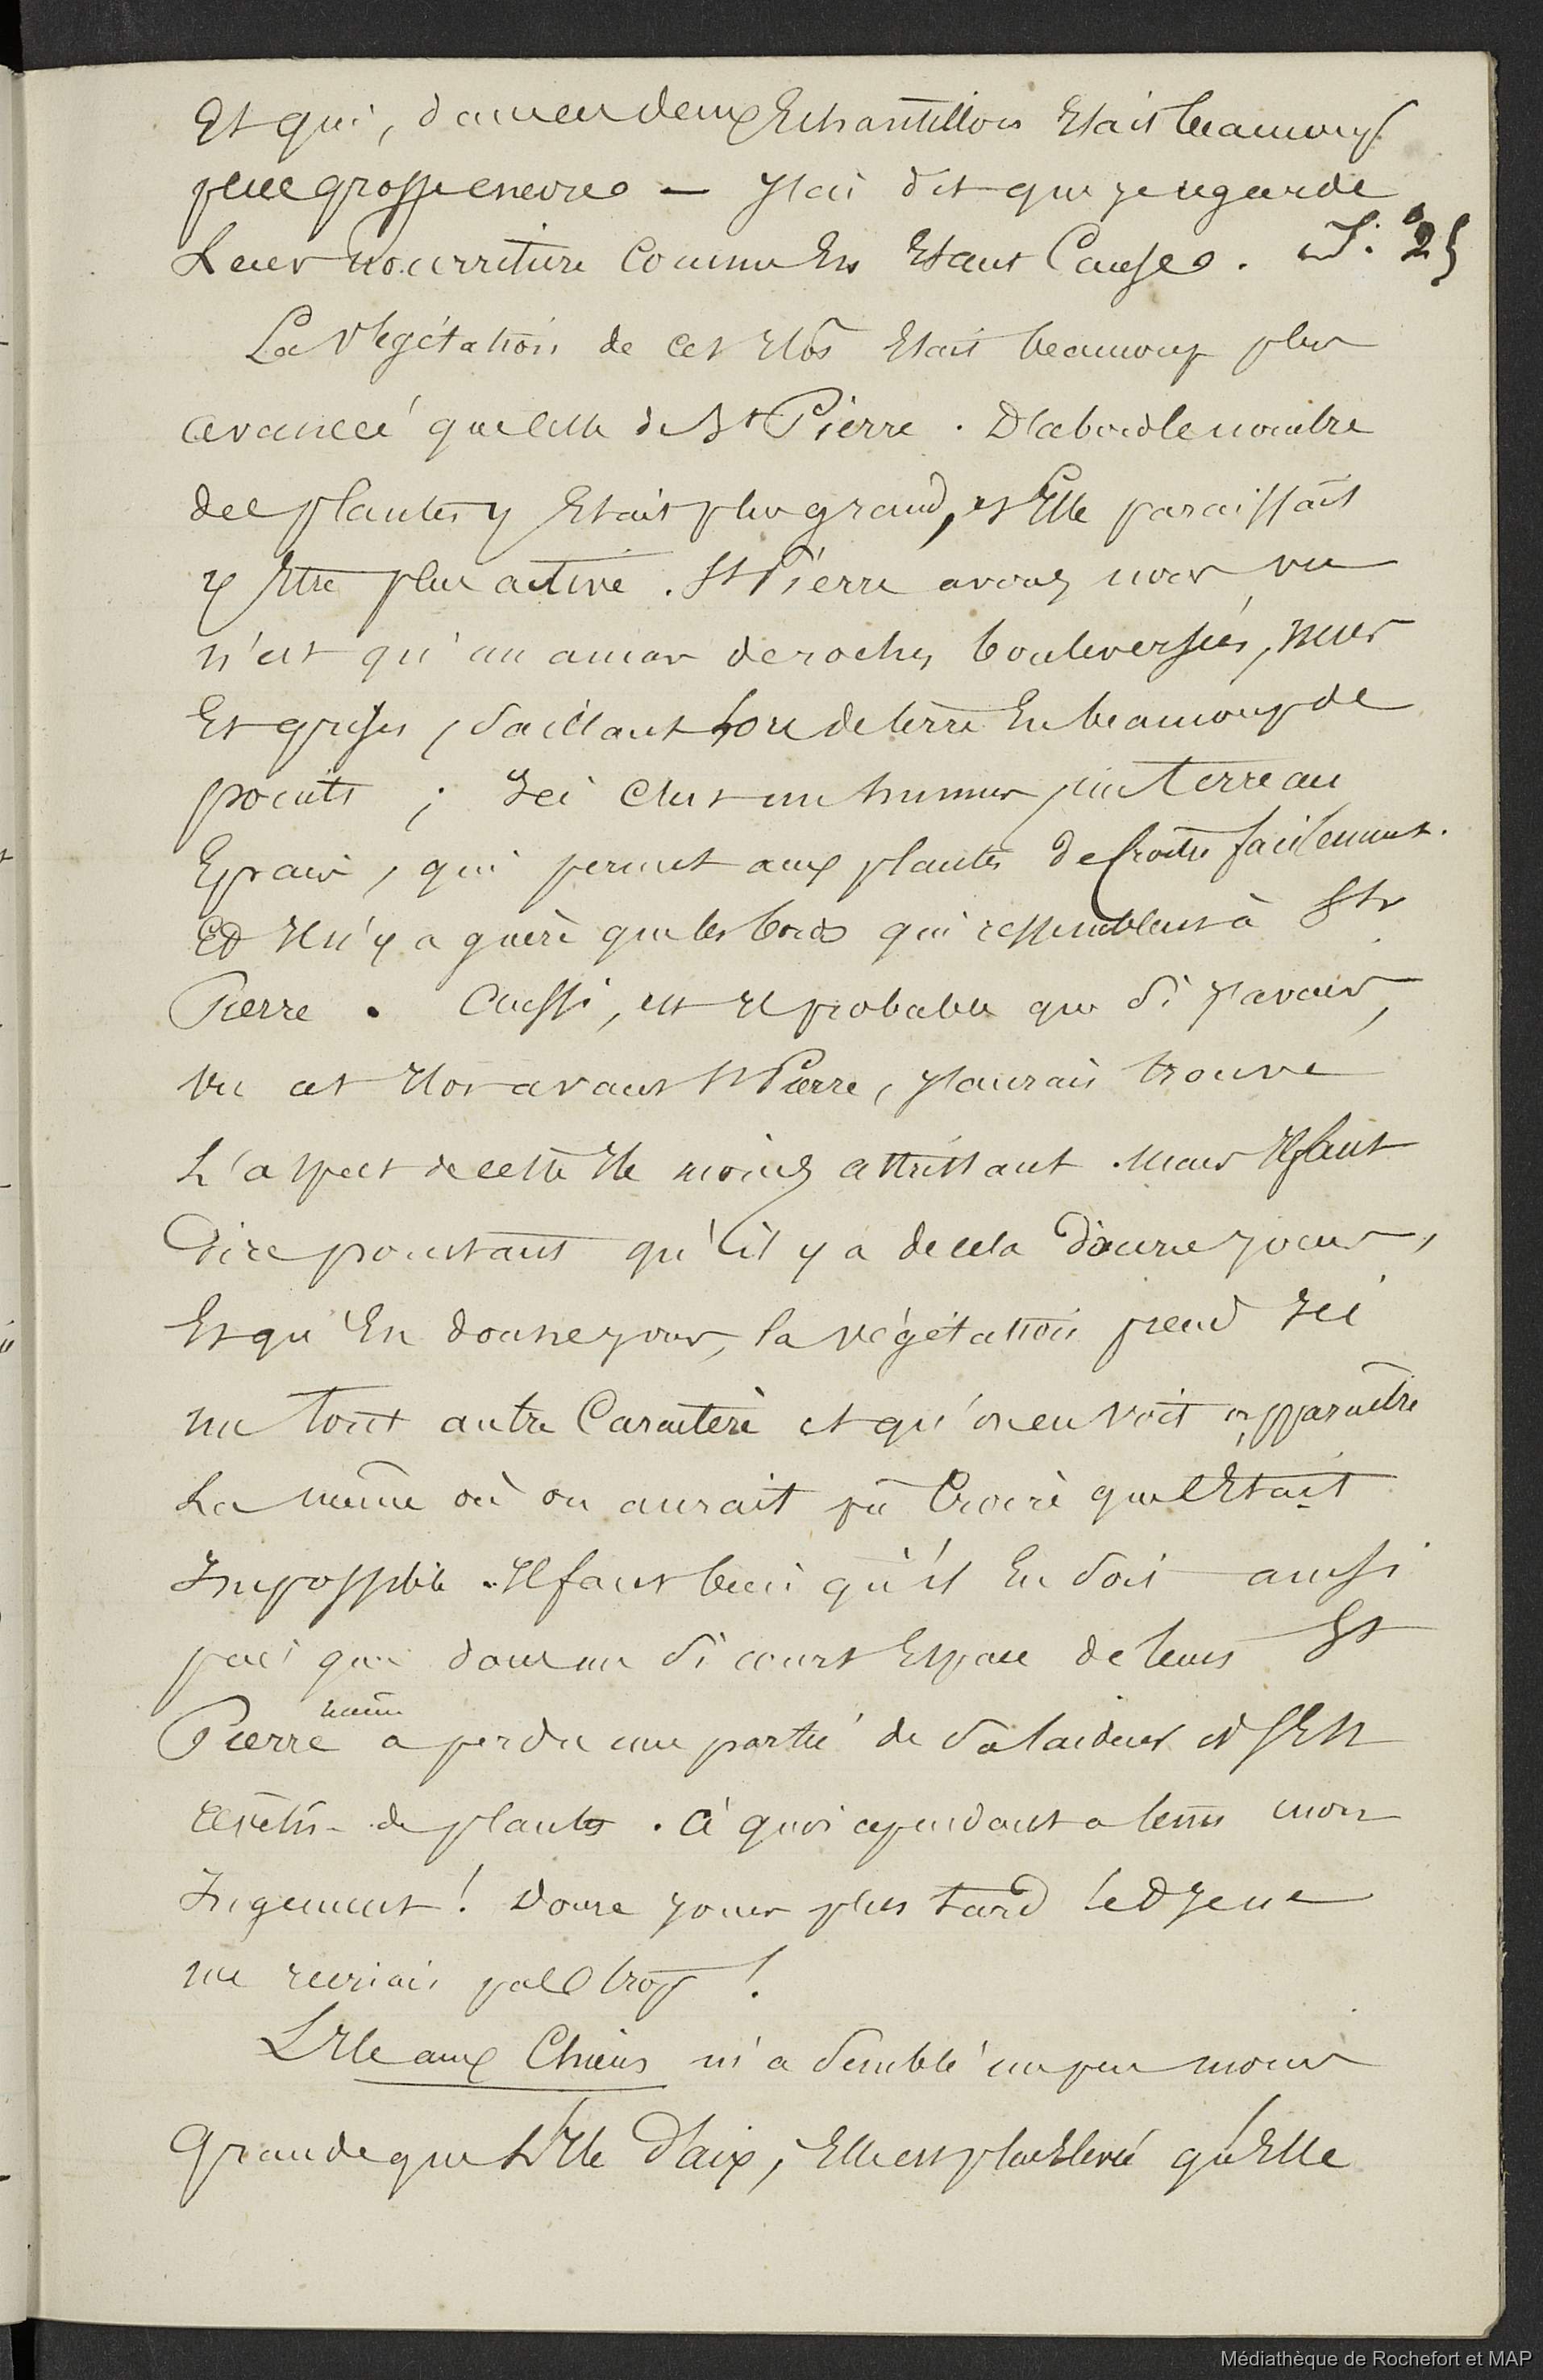 Et qui, dans ces deux Echantillons Etait beaucoup
plus grosse encore — J'ai dit que je regarde
Leur nourriture Comme En Etant Cause. 25
La Végétation de cet Ilôt Etait beaucoup plus
avancée que celle de St Pierre. D'abord le nombre
des plantes y Etait plus grand, et Elle paraissait
y Etre plus active. St Pierre avons nous vu
n'est qu'un amas de roches bouleversées, nues
Et grises, Saillant hors de terre En beaucoup de
points ; Ici c'est un humus, un terreau
Epais, qui permet aux plantes de Croître facilement.
Et Il n'y a guère que les bords qui ressemblent à St
Pierre. Aussi, est il probable que Si J'avais,
Vu cet Ilot avant St Pierre, J'aurais trouvé
L'aspect de cette Ile moins attristant. Mais Il faut
Dire pourtant qu'il y a de cela douze jours,
Et qu'En douze jours, la végétation prend Ici
un tout autre Caractère et qu'on en voit apparaître
La même où on aurait pû Croire que c'Etait
Impossible. Il faut bien qu'il En Soit ainsi
puisque dans un Si court Espace de tems St
Pierre même a perdu une partie de Sa laideur et s'Est
revêtu de plantes. à quoi cependant a tenu mon
Jugement ! Douze jours plus tard et Je ne
me récriais pas trop !
L'Ile aux Chiens m'a Semblé un peu moins
Grande que L'Ile d'aix, Elle est plus Elevée qu'Elle
Médiathèque de Rochefort et MAP